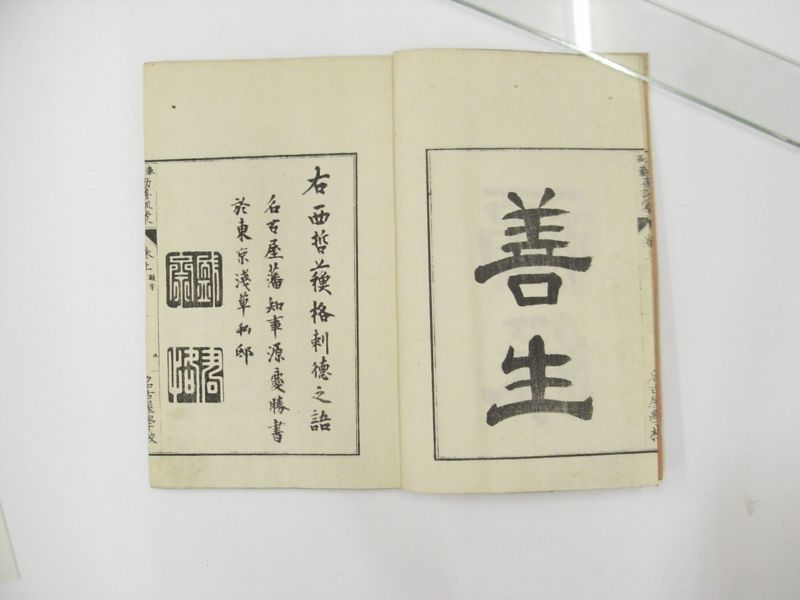 善生
右西哲蘓格剌德之語
名古屋藩知事源慶勝書
於東京淺草私邸
名古屋學校